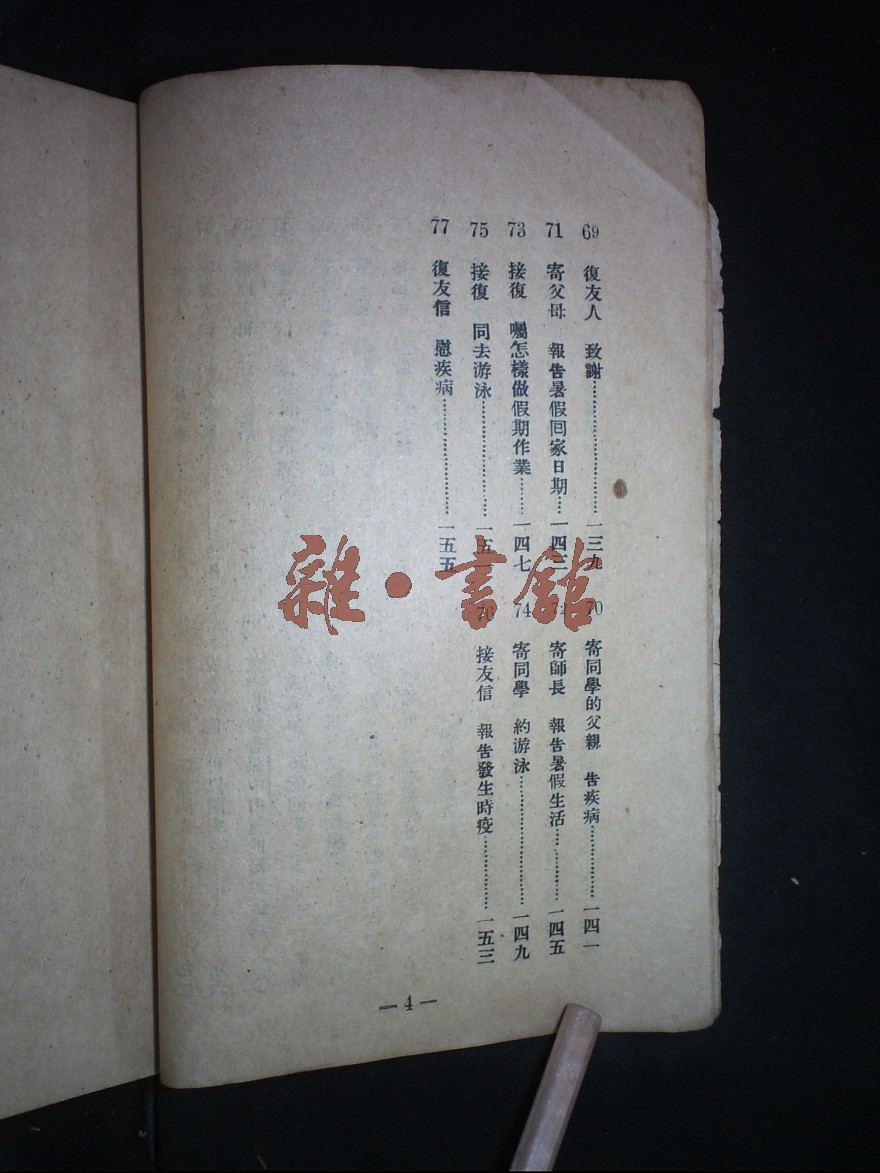 69 復友人 致謝……………………一三九
70 寄同學的父親 告疾病……………一四一
71 寄父母 報告暑假回家日期……一四三
72 寄師長 報告暑假生活……………一四五
73 接復 囑怎樣做假期作業………一四七
74 寄同學 約游泳……………………一四九
75 接復 同去游泳……………………一五
76 接友信 報告發生時疫……………一五三
77 復友信 慰疾病……………………一五五
—4—
雜·書館